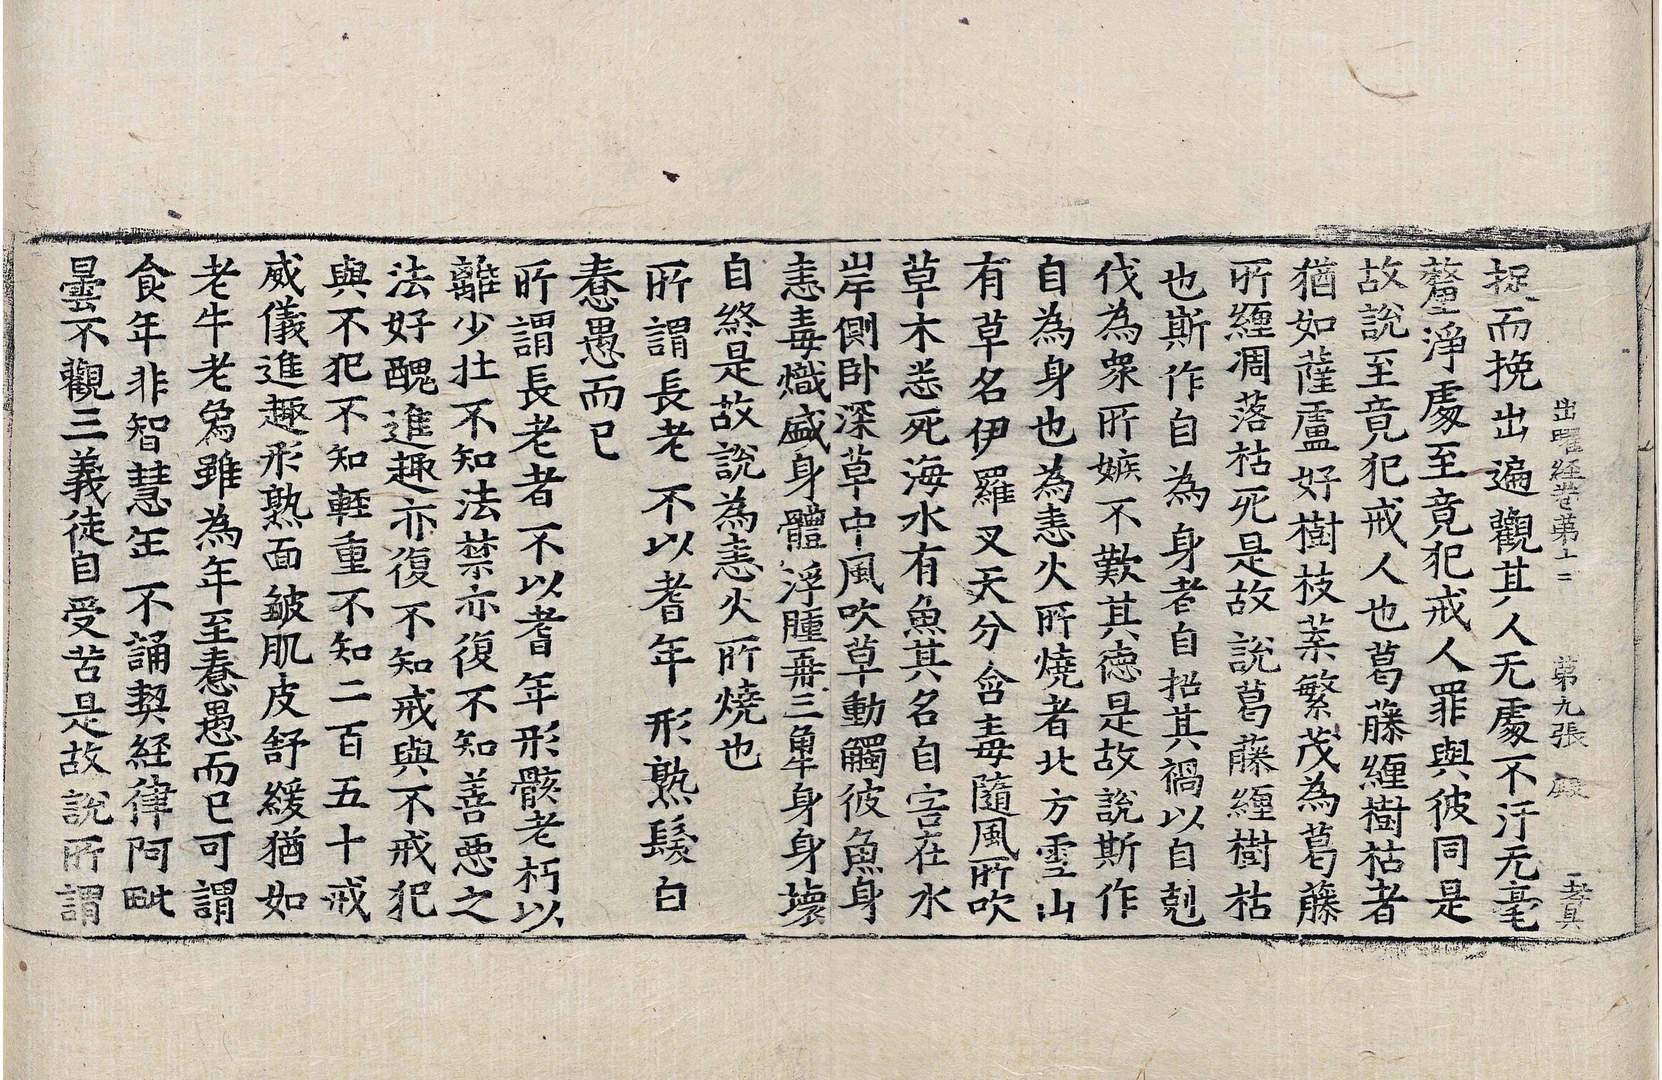 出曜經卷第十二 第九張 殿
捉而挽出遍觀其人无處不汙无毫
釐淨處至竟犯戒人罪與彼同是
故說至竟犯戒人也葛藤纏樹枯者
猶如薩盧好樹枝葉繁茂為葛藤
所纏凋落枯死是故說葛藤纏樹枯
也斯作自為身者自招其禍以自剋
伐為衆所嫉不歎其德是故說斯作
自為身也為恚火所燒者北方雪山
有草名伊羅叉天分含毒隨風所吹
草木悉死海水有魚其名自害在水
岸側卧深草中風吹草動觸彼魚身
恚毒熾盛身體浮腫再三犀身身壞
自終是故說為恚火所燒也
所謂長老 不以耆年 形熟髮白
惷愚而已
所謂長老者不以耆年形骸老朽以
離少壯不知法禁亦復不知善惡之
法好醜進趣亦復不知戒與不戒犯
與不犯不知輕重不知二百五十戒
威儀進趣形熟面皺肌皮舒緩猶如
老牛老象雖為年至惷愚而已可謂
食年非智慧年不誦契經律阿毗
曇不觀三義徒自受苦是故說所謂